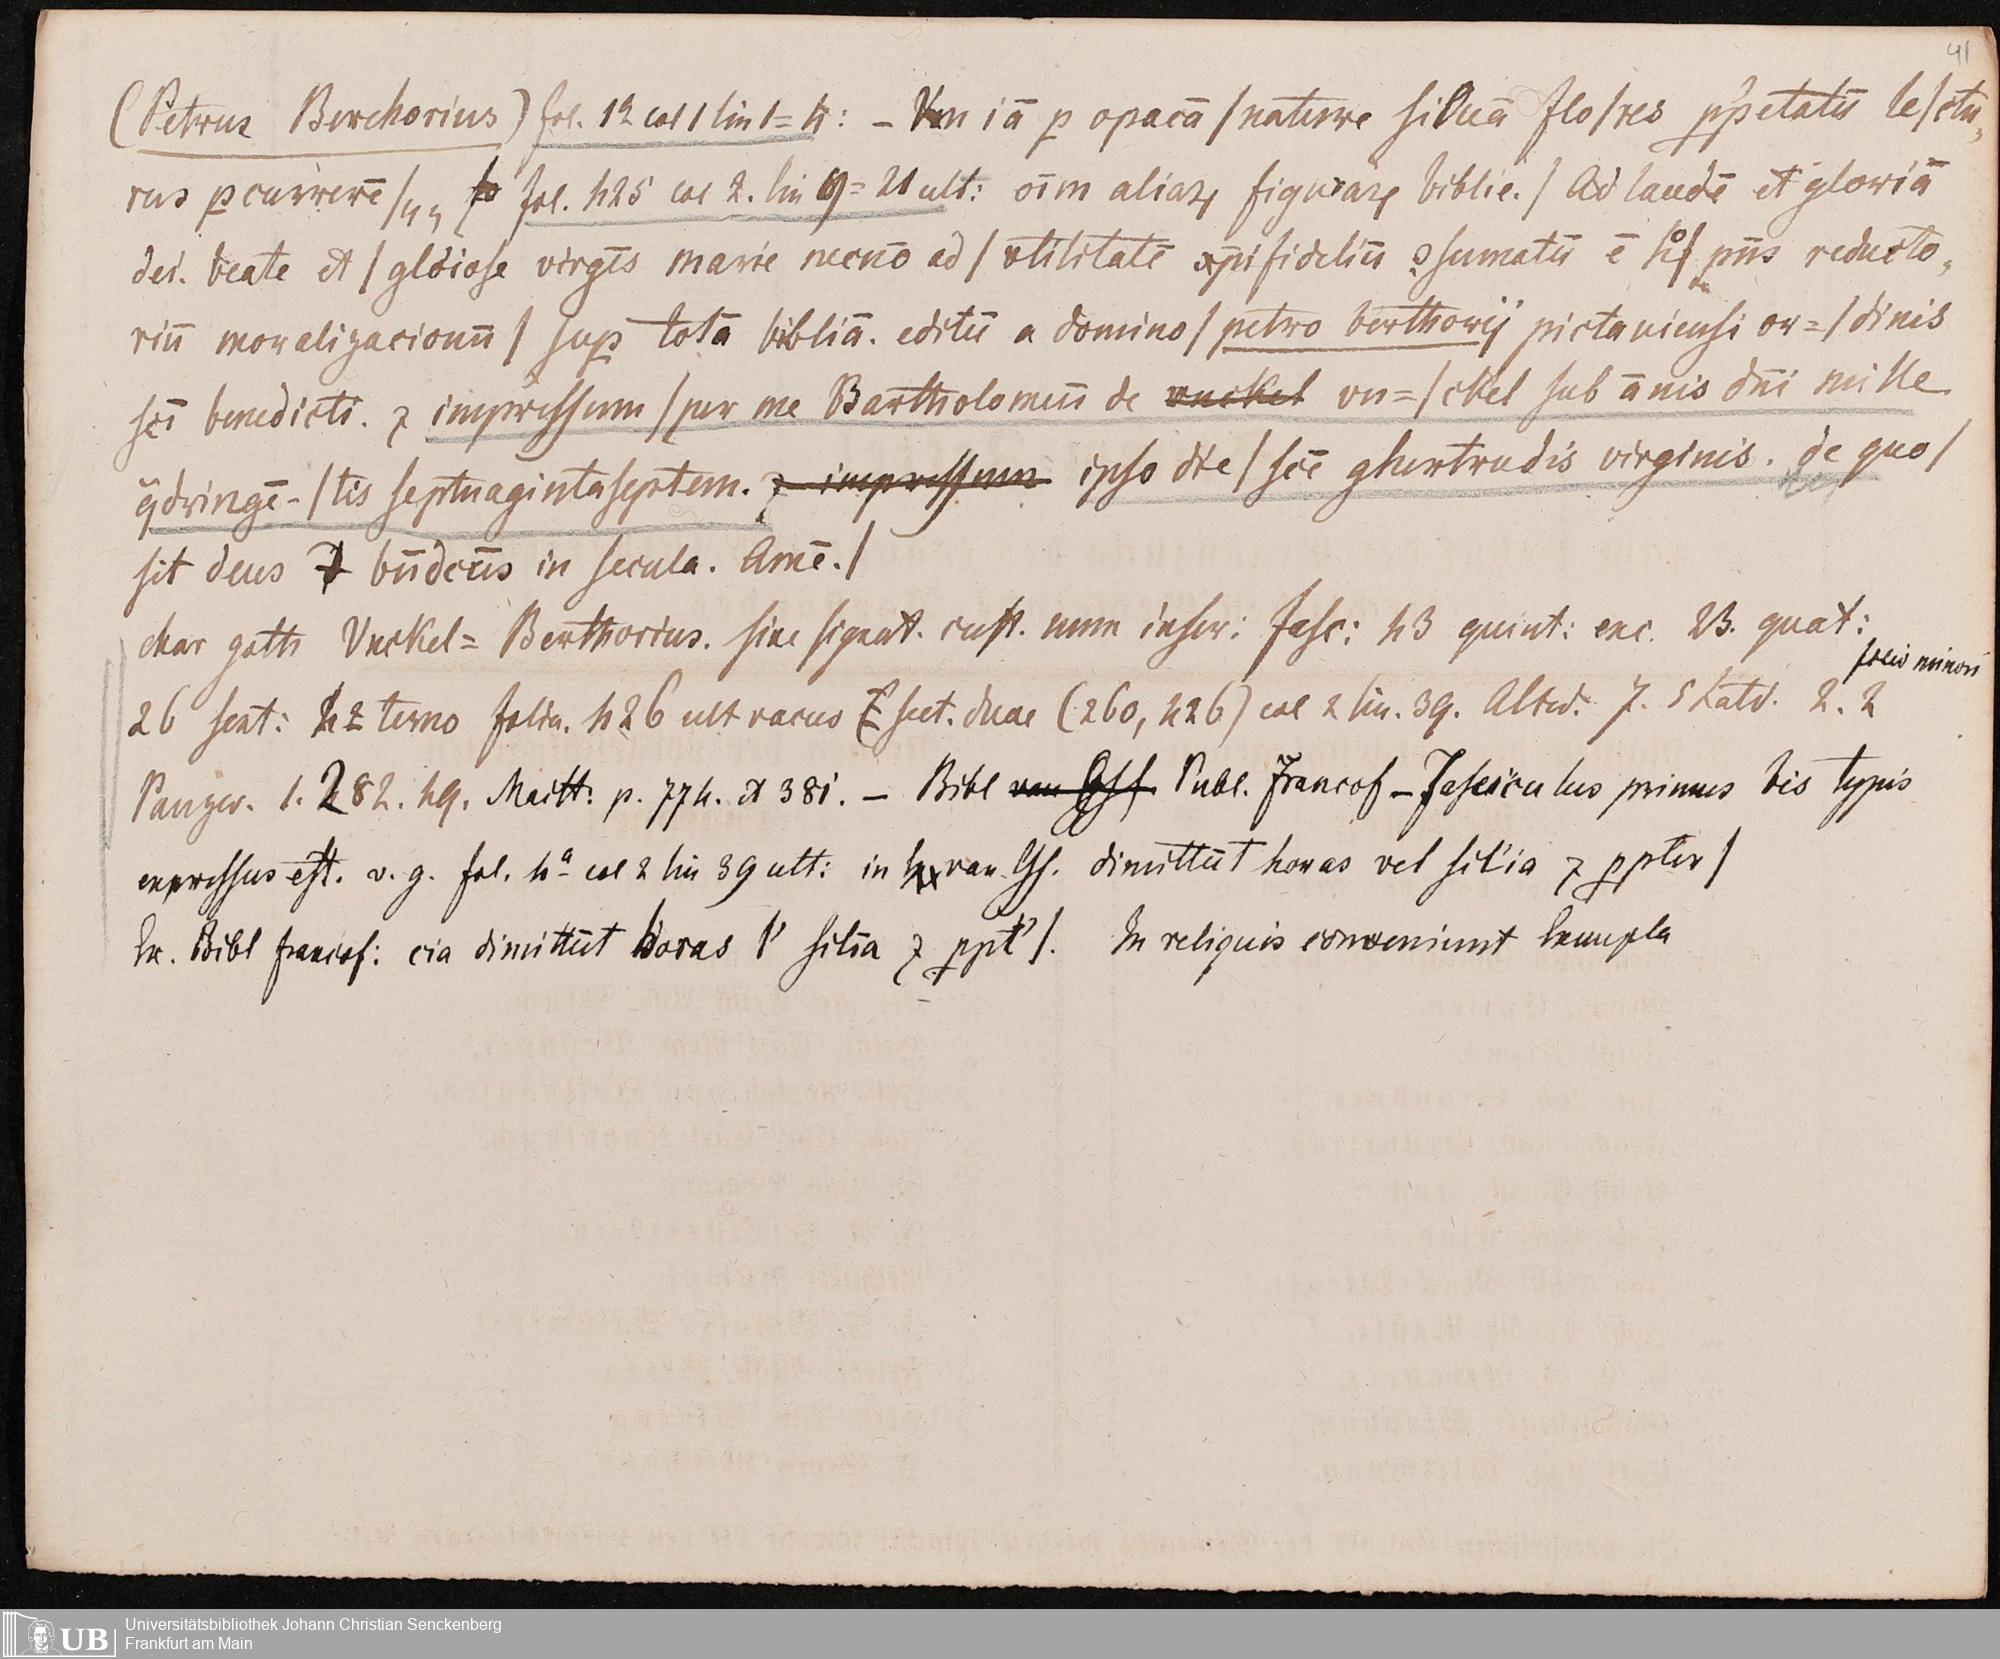 41
(Petrus Berchorius) fol. 1a col 1 lin 1=4: – Vn iā p opacā / nature siluā flo/res pp̄etatū le/ctu,
rus pcurrerē/ fol. 425 col 2. lin 9=21 ult: oīm aliaꝝ figuraꝝ biblie. / Ad laudē et gloriā
dei. beate et / glōiose virgīs marie necnō ad / vtilitatē xp̄ifideliū ꝯsumatū ē h° / pn̄s reducto,
riū moralizacionū / sup totā bibliā. editū a domino / petro berthorij pictauiensi or=/dinis
scī benedicti. ⁊ impressum / per me Bartholomeū de vnckel vn=/ckel sub ānis dn̄i mille
q̄dringē-/tis septuagintaseptem. ⁊ impressum ipso die / scē ghertrudis virginis. de quo /
sit deus bn̄dcūs in secula. Amē. /
char goth Vnckel= Berthorius. sine signat. cust. num inser: fasc: 43 quint: exc. 23. quat:
folio minori
26 sext: 42 terno folia. 426 ult vacus sect. duae (260, 226) col 2 lin. 39. Altd. 7. 5 Catd. 2. 2
Panzer. 1. 282. 49. Maitt: p. 774. et 381. – Bibl van Publ. Francof – Fasciculus primus bis typis
expressus est. v. g. fol. 4a col 2 lin 39 ult: in van Gf. dimittūt horas vel silīa ⁊ ppter /
Ex. Bibl francof: cia dimittūt horas l' silīa ⁊ ppt' /. In reliquis conveniunt Exempla
Universitätsbibliothek Johann Christian Senckenberg
Frankfurt am Main
UB